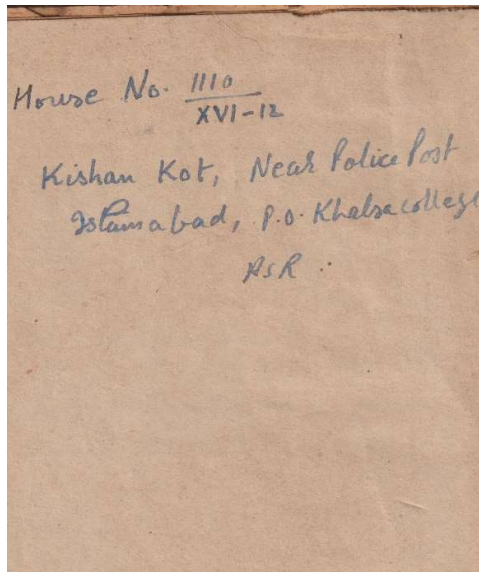 House No. 1110
XVI-12
Kishan Kot, Near Police Post
Islamabad, P.O. Khalsa college
ASR.